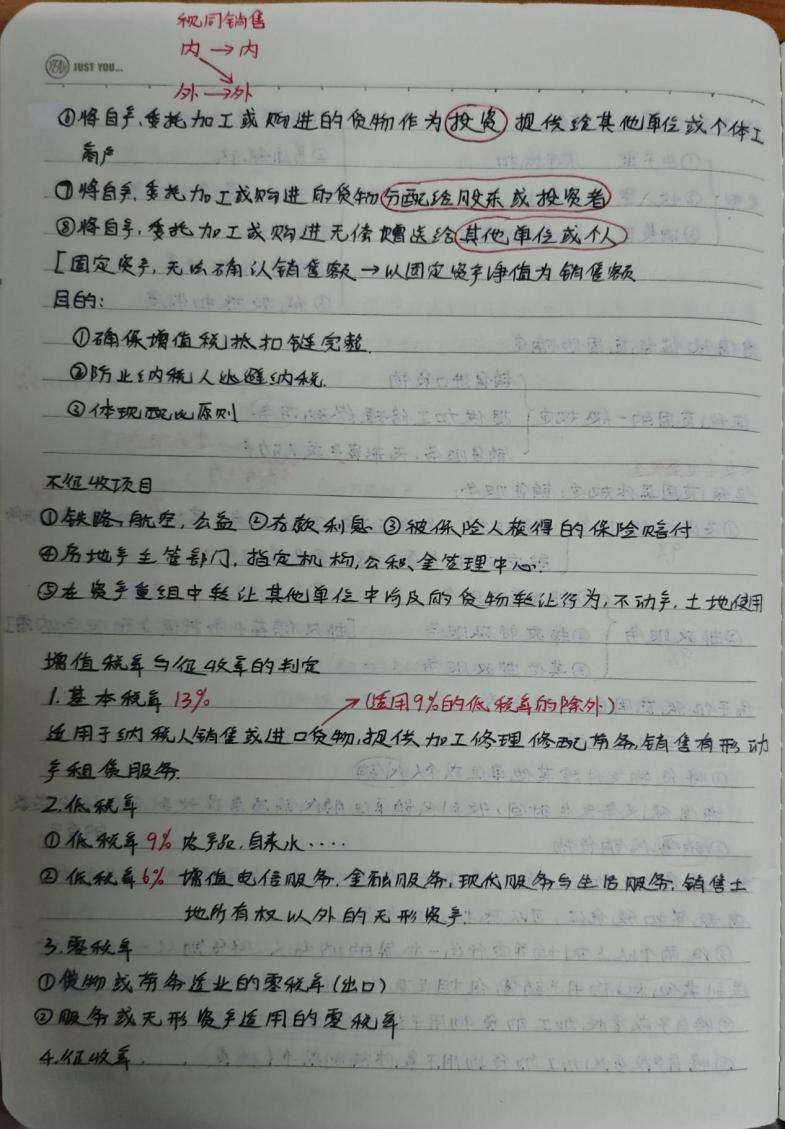 视同销售
内→内
外→外
YEAH JUST YOU...
⑥将自产、委托加工或购进的货物作为投资 提供给其他单位或个体工
商户
⑦将自产、委托加工或购进的货物分配给股东或投资者
⑧将自产、委托加工或购进无偿赠送给其他单位或个人
[固定资产,无法确认销售额→以固定资产净值为销售额
目的:
①确保增值税抵扣链完整.
②防止纳税人逃避纳税.
③体现配比原则
不征收项目
①铁路、航空,公益 ②存款利息 ③被保险人获得的保险赔付
④房地产主管部门,指定机构,公积金管理中心.
⑤在资产重组中转让其他单位中涉及的货物转让行为,不动产,土地使用
增值税率与征收率的判定
1.基本税率 13% (适用9%的低税率的除外)
适用于纳税人销售或进口货物,提供加工修理修配劳务,销售有形动
产租赁服务.
2.低税率
①低税率9% 农产品,自来水····
②低税率6% 增值电信服务,金融服务,现代服务与生活服务,销售土
地所有权以外的无形资产.
3.零税率
①货物或劳务适业的零税率(出口)
②服务或无形资产适用的零税率
4.征收率.